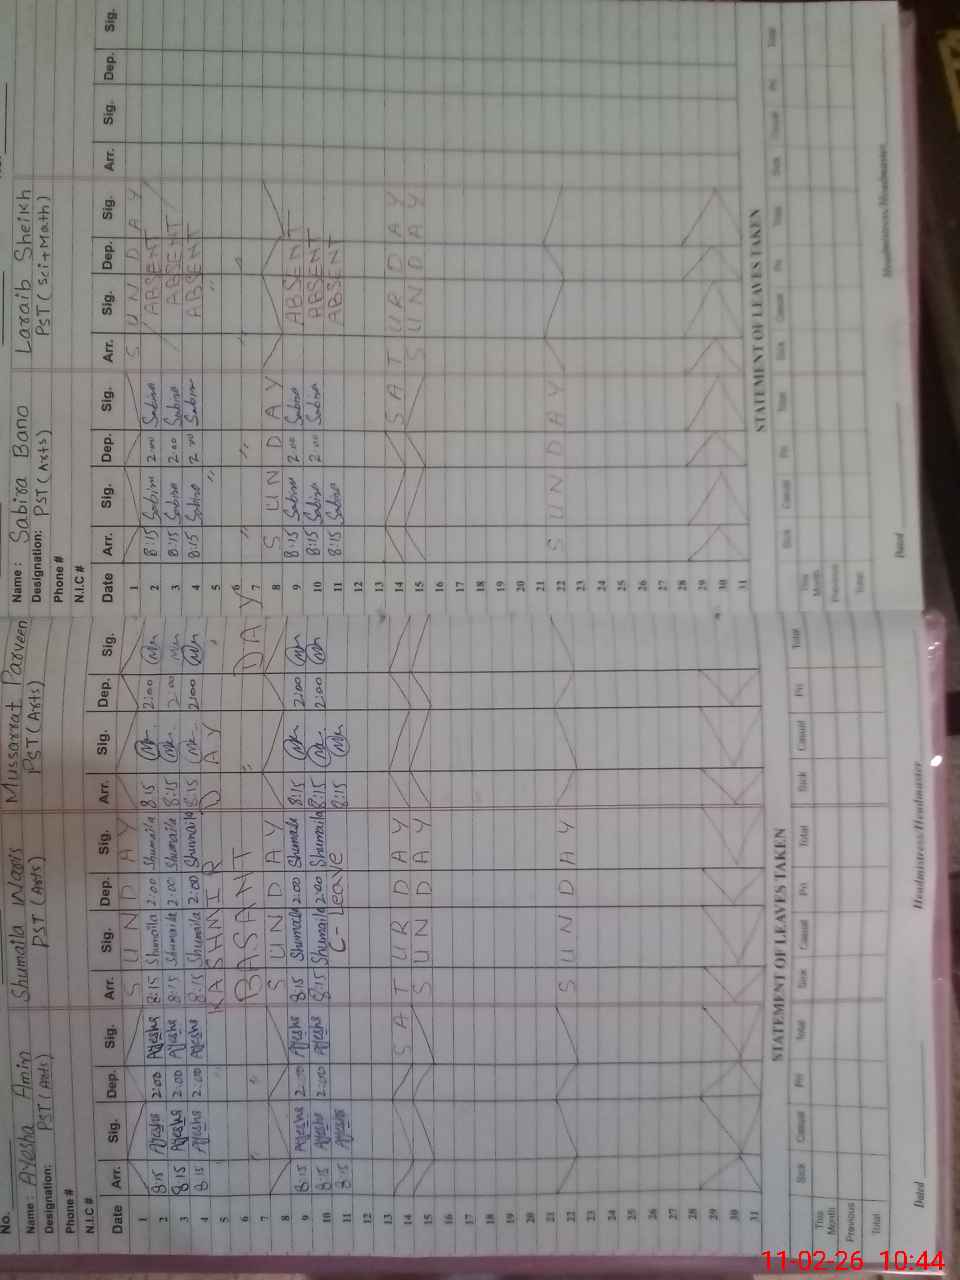 No.
Name : Ayesha Amin Shumaila Waris Mussarrat Parveen
Designation: PST (Arts) PST (Arts) PST (Arts)
Phone #
N.I.C #
Date Arr. Sig. Dep. Sig. Arr. Sig. Dep. Sig. Arr. Sig. Dep. Sig.
1 SUNDAY
2 8:15 Ayesha 2:00 Ayesha 8:15 Shumaila 2:00 Shumaila 8:15 2:00
3 8:15 Ayesha 2:00 Ayesha 8:15 Shumaila 2:00 Shumaila 8:15 2:00
4 8:15 Ayesha 2:00 Ayesha 8:15 Shumaila 2:00 Shumaila 8:15 2:00
5 KASHMIR DAY
6 BASANT DAY
7
8 SUNDAY
9 8:15 Ayesha 2:00 Ayesha 8:15 Shumaila 2:00 Shumaila 8:15 2:00
10 8:15 Ayesha 2:00 Ayesha 8:15 Shumaila 2:00 Shumaila 8:15 2:00
11 8:15 Ayesha C- Leave 8:15
12
13
14 SATURDAY
15 SUNDAY
16
17
18
19
20
21
22 SUNDAY
23
24
25
26
27
28
29
30
31
STATEMENT OF LEAVES TAKEN
Sick Casual Pri Total Sick Casual Pri Total Sick Casual Pri Total
This Month
Previous
Total
Dated Headmistress/Headmaster
Name : Sabira Bano Laraib Sheikh
Designation: PST (Arts) PST (Sci+Math)
Phone #
N.I.C #
Date Arr. Sig. Dep. Sig. Arr. Sig. Dep. Sig. Arr. Sig. Dep. Sig.
1 SUNDAY
2 8:15 Sabira 2:00 Sabira ABSENT
3 8:15 Sabira 2:00 Sabira ABSENT
4 8:15 Sabira 2:00 Sabira ABSENT
5
6
7
8 SUNDAY
9 8:15 Sabira 2:00 Sabira ABSENT
10 8:15 Sabira 2:00 Sabira ABSENT
11 8:15 Sabira ABSENT
12
13
14 SATURDAY
15 SUNDAY
16
17
18
19
20
21
22 SUNDAY
23
24
25
26
27
28
29
30
31
STATEMENT OF LEAVES TAKEN
Sick Casual Pri Total Sick Casual Pri Total Sick Casual Pri Total
This Month
Previous
Total
Dated Headmistress/Headmaster
11-02-26 10:44